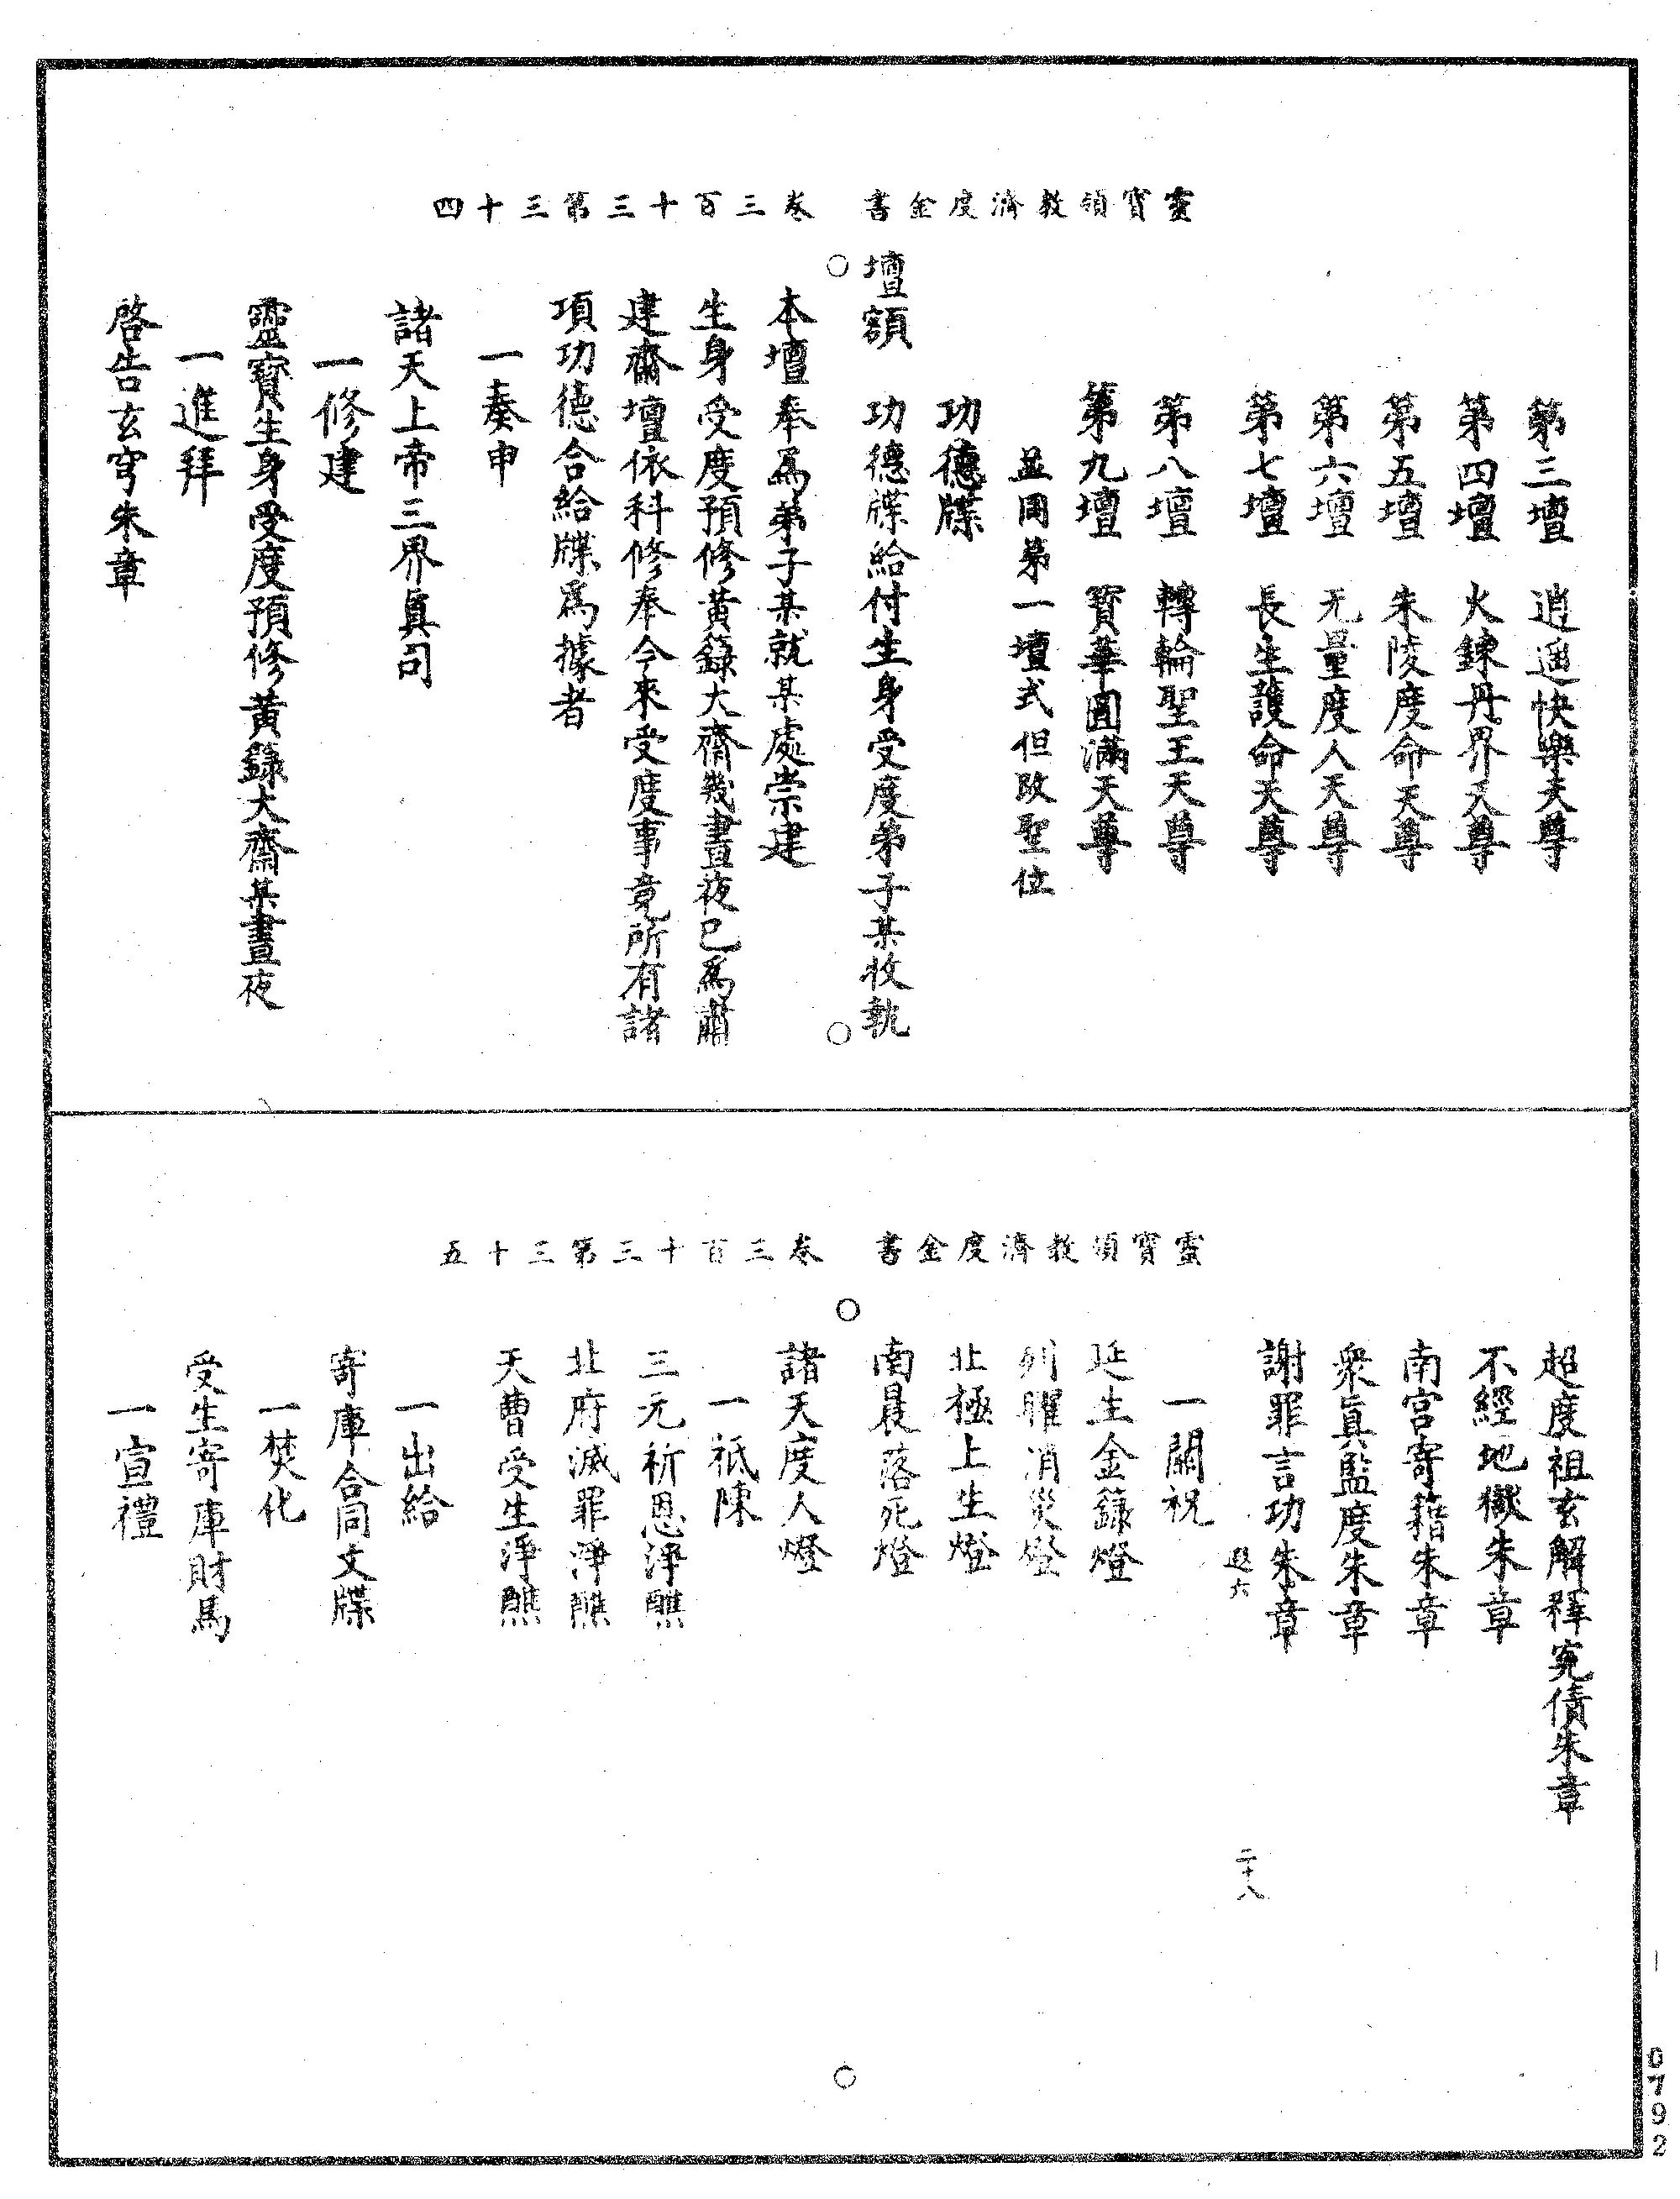 靈寶領教濟度金書　卷三百十三第三十四
第三壇　逍遥快樂天尊
第四壇　火鍊丹界天尊
第五壇　朱陵度命天尊
第六壇　无量度人天尊
第七壇　長生護命天尊
第八壇　轉輪聖王天尊
第九壇　寶華圓滿天尊
並同第一壇式但改聖位
功德牒
壇額　功德牒給付生身受度弟子某收執
本壇奉爲弟子某就某處崇建
生身受度預修黃籙大齋幾晝夜已爲肅
建齋壇依科修奉今來受度事竟所有諸
項功德合給牒爲據者
一奏申
諸天上帝三界眞司
一修建
靈寶生身受度預修黃籙大齋某晝夜
一進拜
啓告玄穹朱章
靈寶領教濟度金書　卷三百十三第三十五
超度祖玄解釋寃債朱章
不經地獄朱章
南宮寄籍朱章
衆眞監度朱章
謝罪言功朱章
遐六　二十八
一關祝
延生金籙燈
列曜消災燈
北極上生燈
南晨落死燈
諸天度人燈
一祇陳
三元祈恩淨醮
北府滅罪淨醮
天曹受生淨醮
一出給
寄庫合同文牒
一焚化
受生寄庫財馬
一宣禮
0792